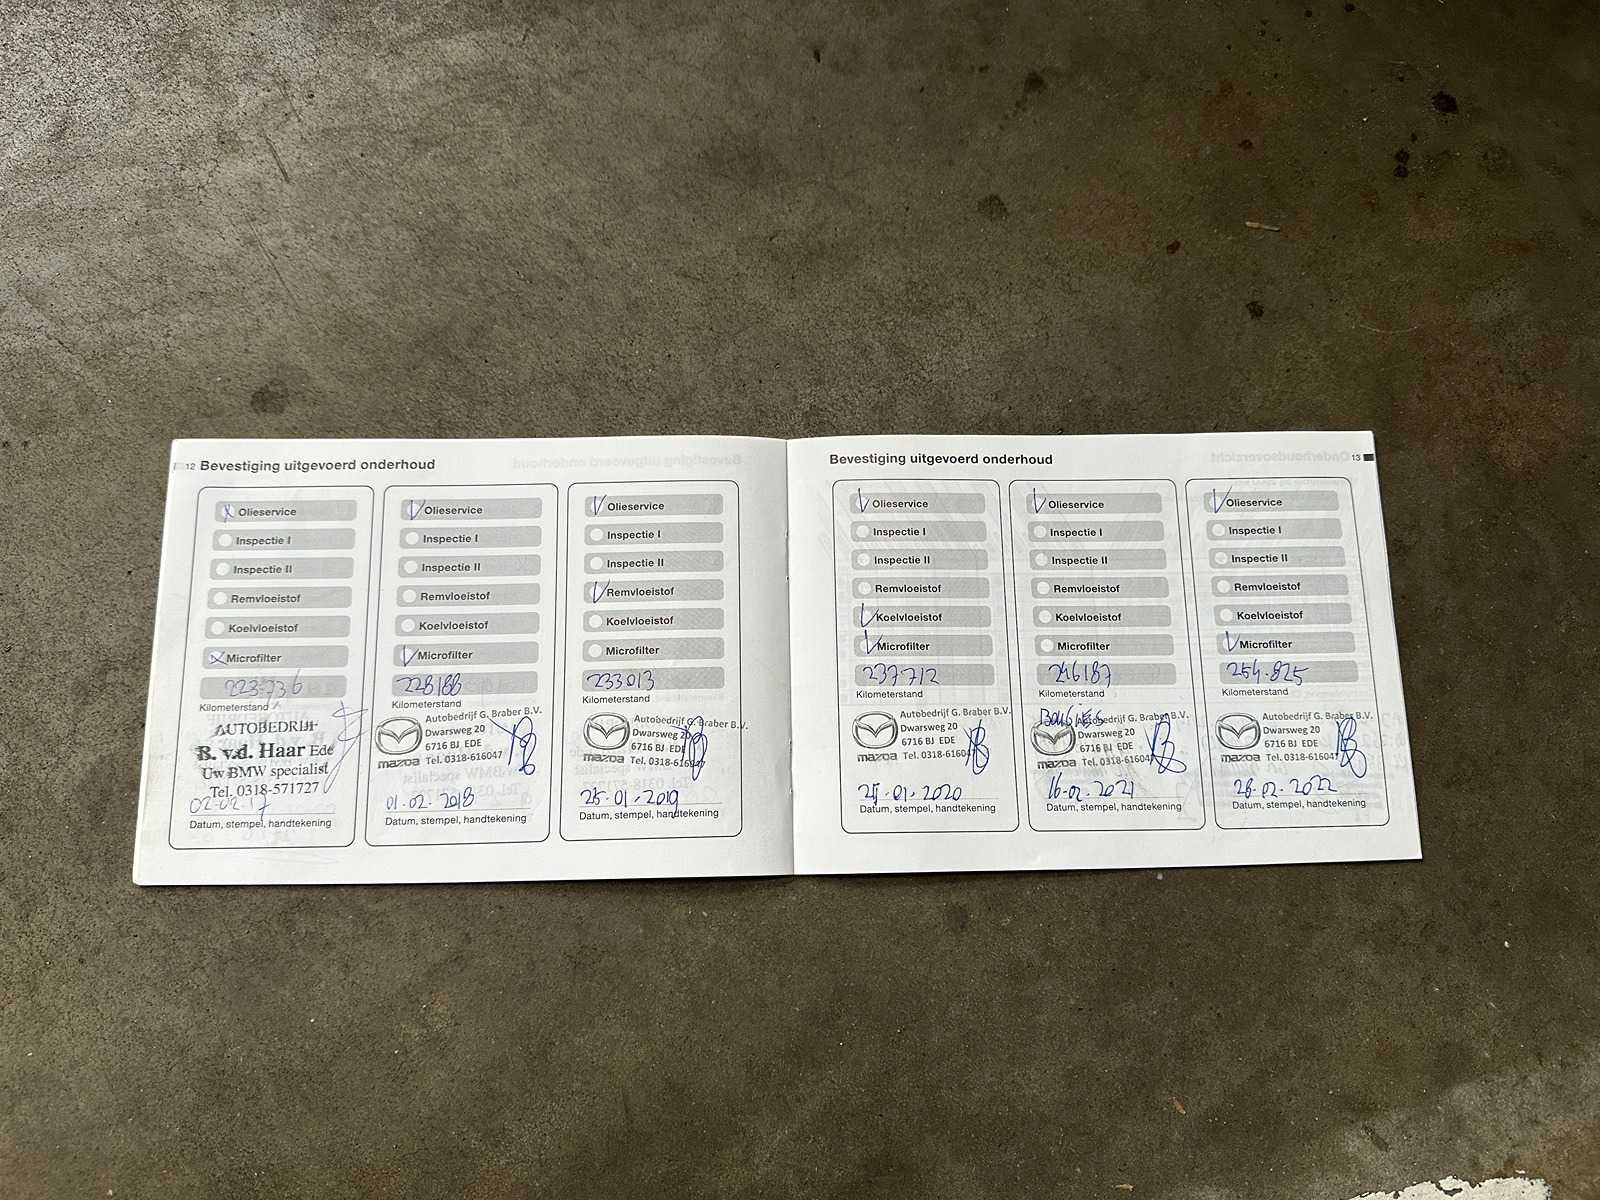 12 Bevestiging uitgevoerd onderhoud
Olieservice
Inspectie I
Inspectie II
Remvloeistof
Koelvloeistof
Microfilter
223.736
Kilometerstand
AUTOBEDRIJF
B. v.d. Haar Ede
Uw BMW specialist
Tel. 0318-571727
02-02-17
Datum, stempel, handtekening
Olieservice
Inspectie I
Inspectie II
Remvloeistof
Koelvloeistof
Microfilter
228188
Kilometerstand
Autobedrijf G. Braber B.V.
Dwarsweg 20
6716 BJ EDE
mazda Tel. 0318-616047
01-02-2018
Datum, stempel, handtekening
Olieservice
Inspectie I
Inspectie II
Remvloeistof
Koelvloeistof
Microfilter
233013
Kilometerstand
Autobedrijf G. Braber B.V.
Dwarsweg 20
6716 BJ EDE
mazda Tel. 0318-616047
25-01-2019
Datum, stempel, handtekening
Bevestiging uitgevoerd onderhoud 13
Olieservice
Inspectie I
Inspectie II
Remvloeistof
Koelvloeistof
Microfilter
237712
Kilometerstand
Autobedrijf G. Braber B.V.
Dwarsweg 20
6716 BJ EDE
mazda Tel. 0318-616047
01-2020
Datum, stempel, handtekening
Olieservice
Inspectie I
Inspectie II
Remvloeistof
Koelvloeistof
Microfilter
246187
Kilometerstand
BOUGIES
Autobedrijf G. Braber B.V.
Dwarsweg 20
6716 BJ EDE
mazda Tel. 0318-616047
16-02-2021
Datum, stempel, handtekening
Olieservice
Inspectie I
Inspectie II
Remvloeistof
Koelvloeistof
Microfilter
254.825
Kilometerstand
Autobedrijf G. Braber B.V.
Dwarsweg 20
6716 BJ EDE
mazda Tel. 0318-616047
28-02-2022
Datum, stempel, handtekening